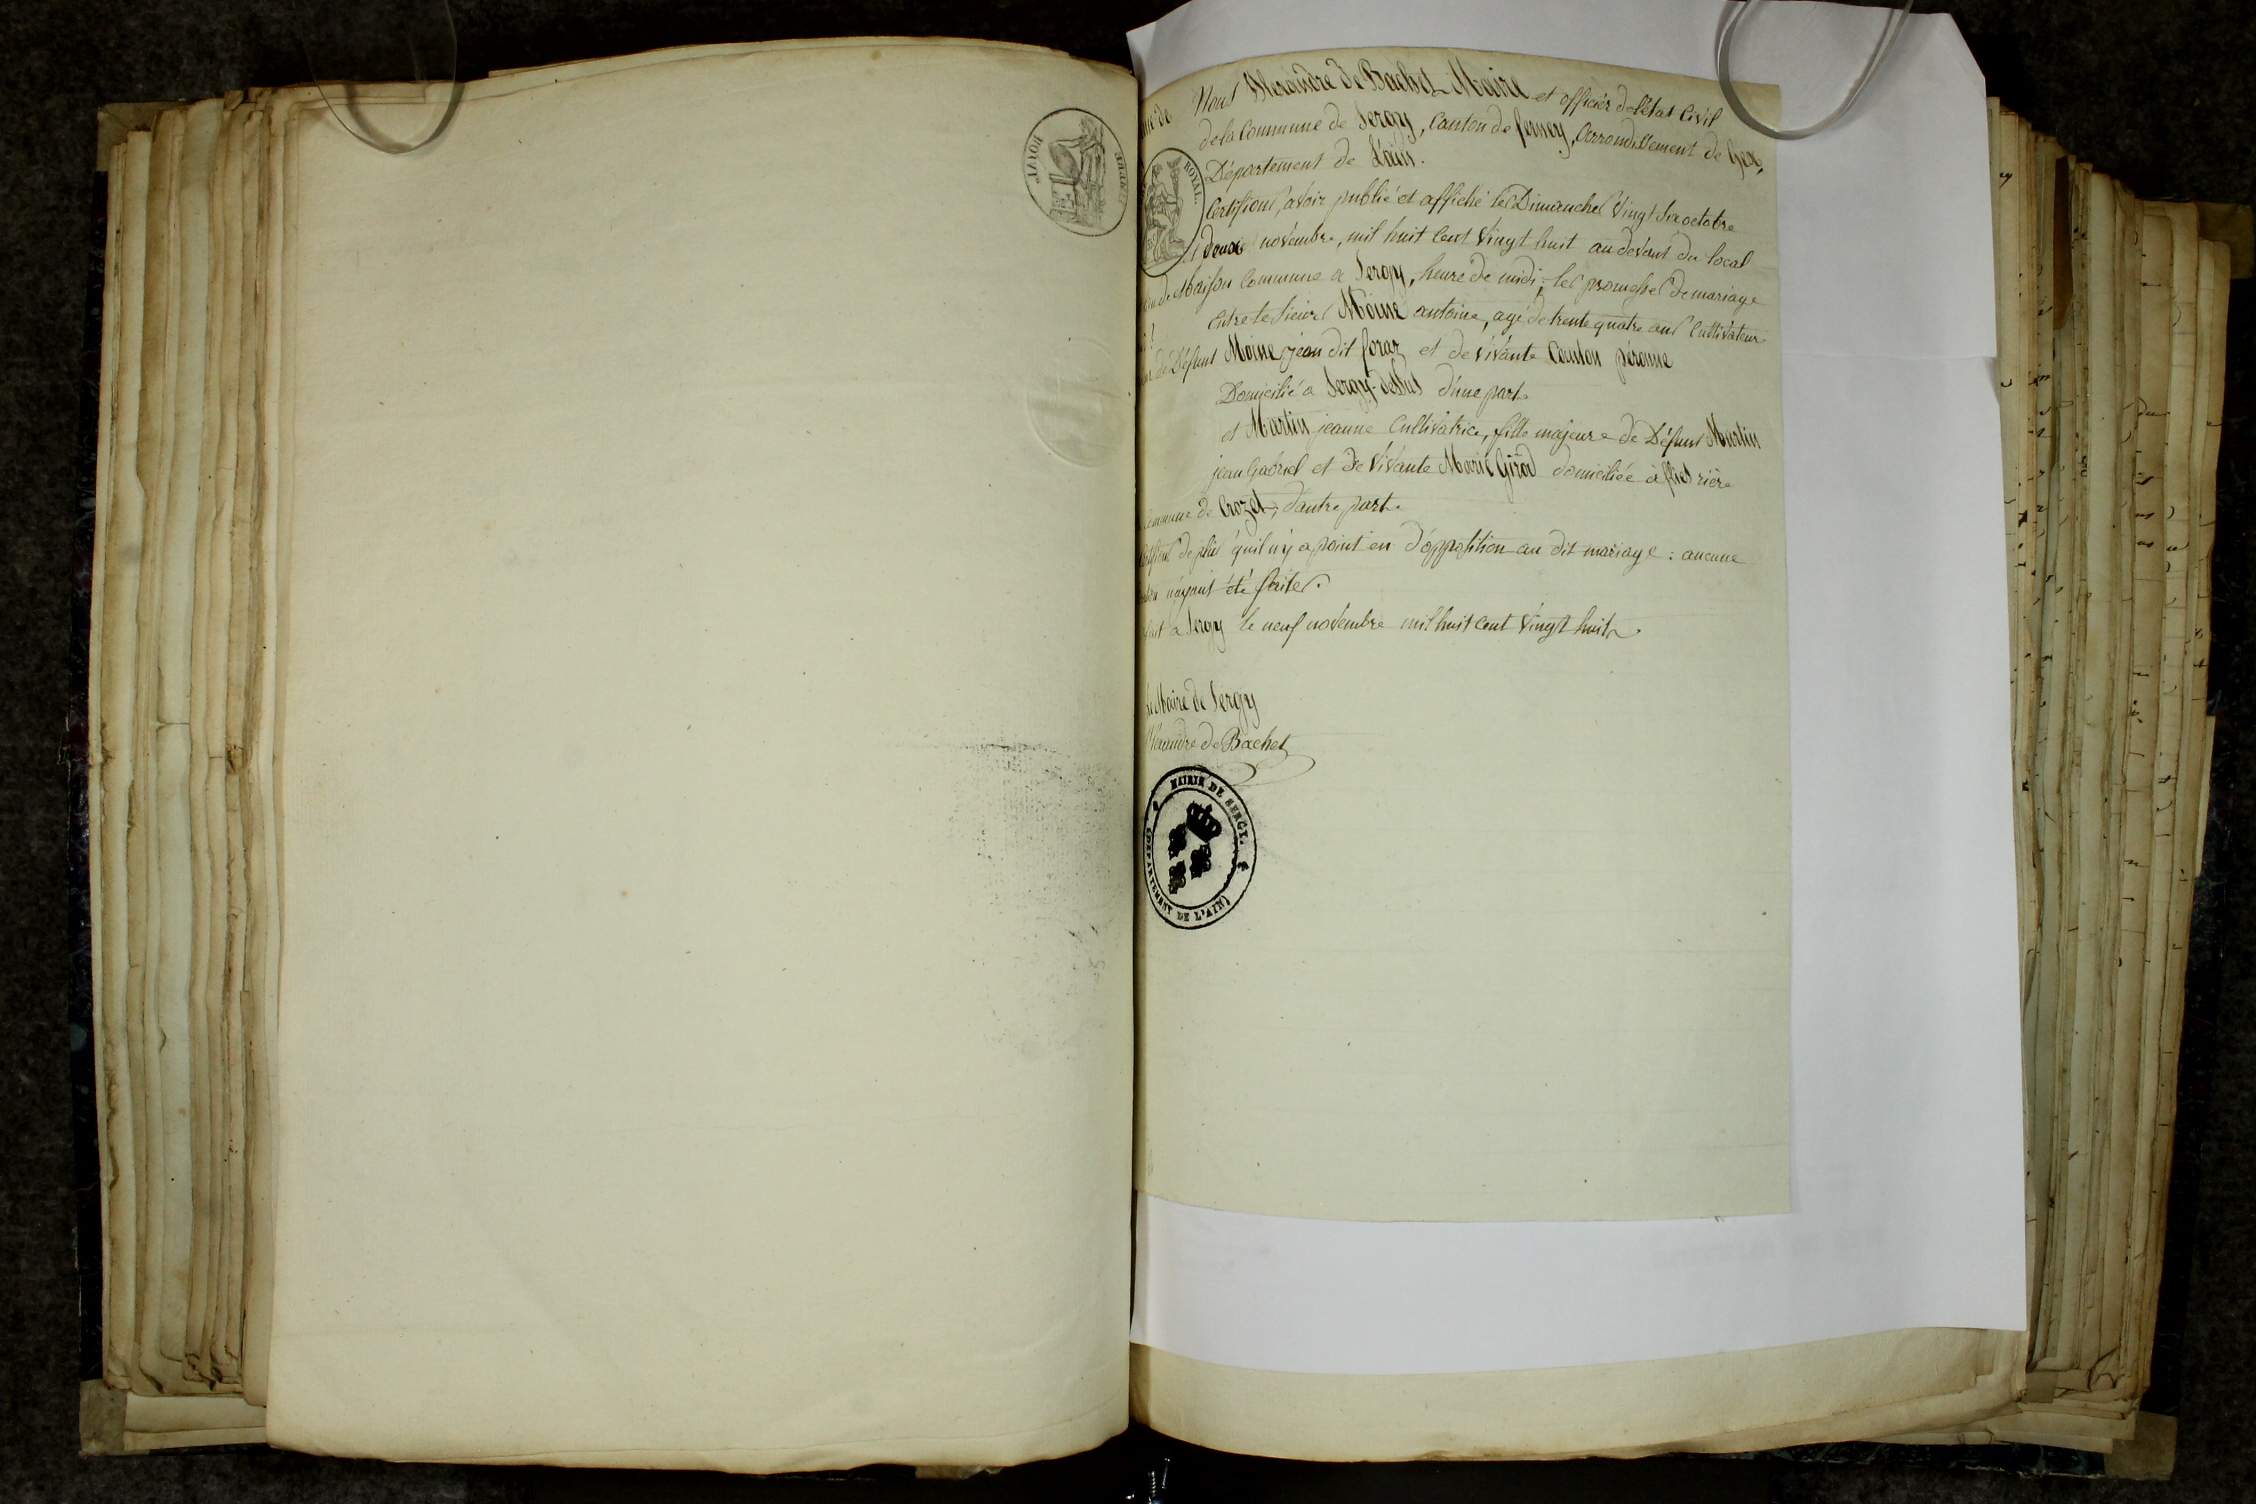 Nous Alexandre de Bachet Maire et officier de l'état Civil
de la Commune de Sergy, Canton de ferney, Arrondissement de Gex,
Département de L'ain.
ROYAL.
Certifions, avoir publié et affiché les Dimanches vingt six octobre
deux novembre, mil huit Cent vingt huit au devant du local
de Maison Commune a Sergy, heure de midi, les promesses de mariage
entre le sieur Moine antoine, agé de trente quatre ans Cultivateur
de Défunt Moine jean dit foraz et de vivante péronne
Domicilié a Sergy-dessus d'une part
et Martin jeanne Cultivatrice, fille majeure de Défunt Martin
jean Gabriel et de vivante Marie Girod domiciliée à flies rière
Commune de Crozet, d'autre part.
de plus qu'il n'y a point eu d'opposition au dit mariage : aucune
n'ayant été faite.
fait a Sergy le neuf novembre mil huit Cent vingt huit.
Le Maire de Sergy
Alexandre de Bachet
MAIRIE DE SERGY.
(DEPARTEMENT DE L'AIN)